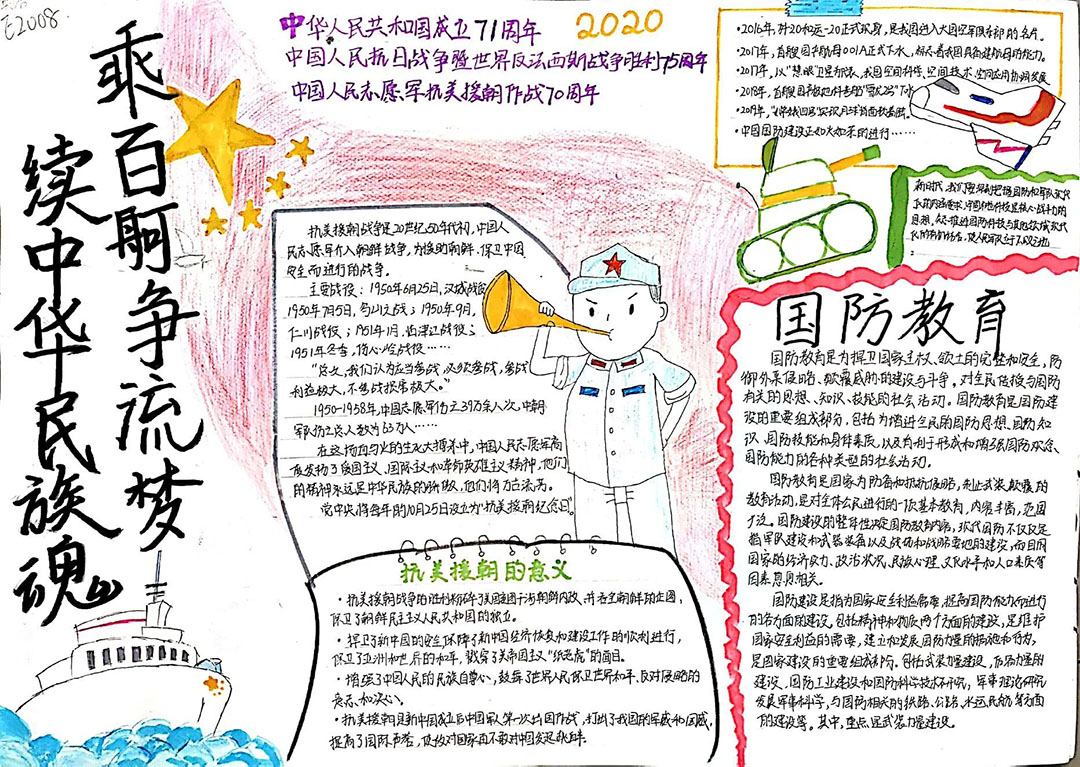 E2008
乘百舸争流梦
续中华民族魂
中华人民共和国成立71周年
2020
中国人民抗日战争暨世界反法西斯战争胜利75周年
中国人民志愿军抗美援朝作战70周年
抗美援朝战争是20世纪50年代初,中国人
民志愿军介入朝鲜战争,为援助朝鲜、保卫中国
安全而进行的战争。
主要战役:1950年6月25日,汉城战役
1950年7月5日,乌山之战;1950年9月,
仁川战役;1951年1月,临津江战役;
1951年冬季,伤心岭战役……
"总之,我们认为应当参战,必须参战,参战
利益极大,不参战损害极大。"
1950-1958年,中国志愿军伤亡39万余人次,中朝
军队伤亡总人数为63万……
在这场血与火的生死大搏杀中,中国人民志愿军高
度发扬了爱国主义、国际主义和革命英雄主义精神,他们
的精神永远是中华民族的骄傲,他们将万古流芳。
党中央将每年的10月25日设立为"抗美援朝纪念日"。
抗美援朝的意义
·抗美援朝战争的胜利粉碎了美国妄图干涉朝鲜内政、并吞全朝鲜的企图,
保卫了朝鲜民主主义人民共和国的独立。
·捍卫了新中国的安全,保障了新中国经济恢复和建设工作的顺利进行,
保卫了亚洲和世界的和平,戳穿了美帝国主义"纸老虎"的面目。
·增强了中国人民的民族自尊心,鼓舞了世界人民保卫世界和平、反对侵略的
意志和决心。
·抗美援朝是新中国成立后中国军队第一次出国作战,打出了我国的军威和国威,
提高了国际声誉,使敌对国家再不敢对中国发起挑衅.
·2016年,歼20和运-20正式状身,是我国迈入大国空军俱乐部的名片。
·2017年,首艘国产航母001A正式下水,标志着我国具备建航母的能力。
·2017年,以"慧眼"卫星为代表,我国空间科学、空间技术、空间应用协调发展
·2018年,首艘国产
·2019年,
·中国国防建设正如火如荼的进行……
新时代,我们要
思想,
国防教育
国防教育是为捍卫国家主权、领土的完整和安全,防
御外来侵略、颠覆威胁的建设与斗争。对全民传授与国防
有关的思想、知识、技能的社会活动。国防教育是国防建
设的重要组成部分,包括为增进全民的国防思想、国防知
识、国防技能和身体素质,以及有利于形成和增强国防观念、
国防能力的各种类型的社会活动。
国防教育是国家为防备和抵抗侵略,制止武装颠覆的
教育活动,是对全体公民进行的一项基本教育,内容丰富,范围
广泛。国防建设的整体性决定国防教育内容,现代国防不仅仅是
指军队建设和武器装备以及战场和战略要地的建设,而且同
国家的经济实力、政治状况、民族心理、文化水平和人口素质等
因素息息相关。
国防建设是指为国家安全利益需要,提高国防能力而进行
的各方面的建设,包括精神和物质两个方面的建设,是维护
国家安全利益的需要,建立和发展国防力量的措施和行为,
是国家建设的重要组成部分,包括武装力量建设,后备力量的
建设,国防工业建设和国防科学技术研究,军事理论研究
发展军事科学,与国防相关的铁路、公路、水运、民航等方面
的建设等。其中,重点是武装力量建设。